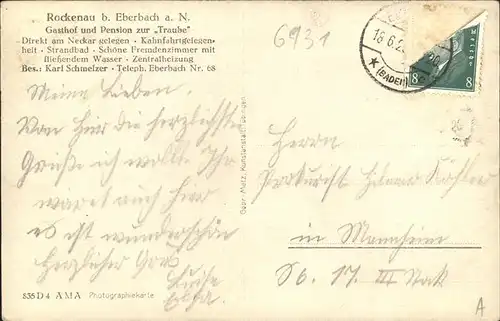 Rockenau b. Eberbach a. N.
Gasthof und Pension zur „Traube"
Direkt am Neckar gelegen · Kahnfahrtgelegen-
heit · Strandbad · Schöne Fremdenzimmer mit
fließendem Wasser · Zentralheizung
Bes.: Karl Schmelzer · Teleph. Eberbach Nr. 68
6931
18.6.2
(BADEN)
8 8
Meine Lieben.
Von hier die herzlichste
Grüße ich wollte Ihr
wäret auch hier
es ist wunderschön
Herzlicher Gruß
Luise
Gebr. Metz, Kunstanstalt, Tübingen
Herrn
Prokurist
in Mannheim
S6. 17. III Stock
535D4 AMA Photographiekarte
A